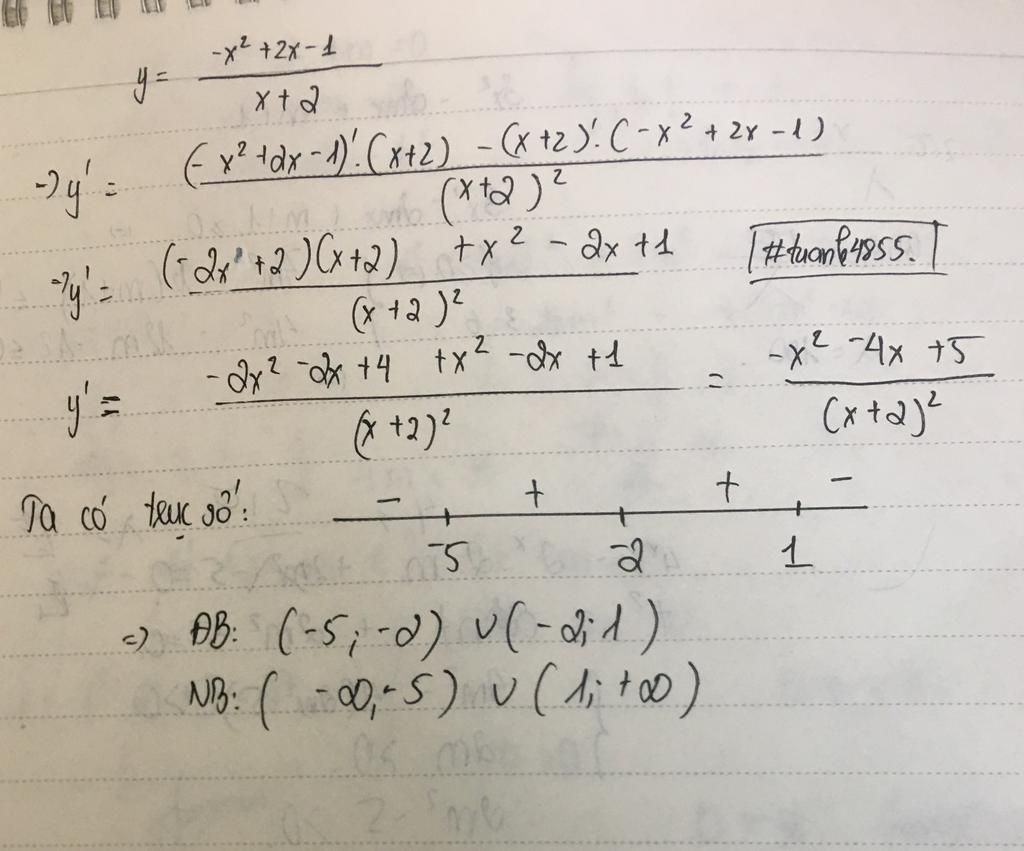 y = \frac{-x^2+2x-1}{x+2}
→ y' = \frac{(-x^2+2x-1)'.(x+2) -(x+2)'.(-x^2+2x-1)}{(x+2)^2}
→ y' = \frac{(-2x+2)(x+2) +x^2-2x+1}{(x+2)^2}
#tuanh4855.
y' = \frac{-2x^2-2x+4 +x^2-2x+1}{(x+2)^2} = \frac{-x^2-4x+5}{(x+2)^2}
Ta có trục số: - + + -
-5 -2 1
=> ĐB: (-5; -2) ∪ (-2; 1)
NB: (-∞; -5) ∪ (1; +∞)